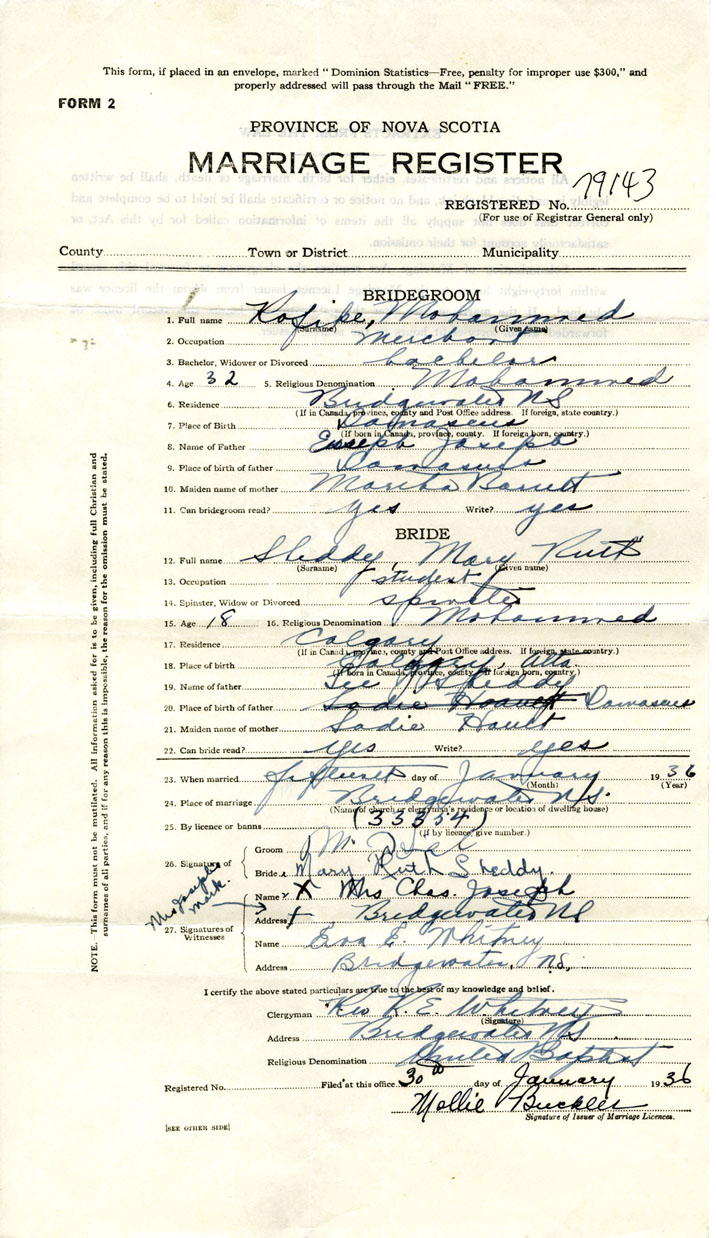 This form, if placed in an envelope, marked "Dominion Statistics—Free, penalty for improper use $300," and
properly addressed will pass through the Mail "FREE."
FORM 2
PROVINCE OF NOVA SCOTIA
MARRIAGE REGISTER
REGISTERED No. 79143
(For use of Registrar General only)
County Town or District Municipality
BRIDEGROOM
1. Full name Mohammed
(Surname) (Given name)
2. Occupation merchant
3. Bachelor, Widower or Divorced bachelor
4. Age 32 5. Religious Denomination Mohammed
6. Residence Bridgewater NS
(If in Canada, province, county and Post Office address. If foreign, state country.)
7. Place of Birth Damascus
(If born in Canada, province, county. If foreign born, country.)
8. Name of Father Joseph
9. Place of birth of father Damascus
10. Maiden name of mother Martha
11. Can bridegroom read? yes Write? yes
BRIDE
12. Full name Sheddy, Mary Ruth
(Surname) (Given name)
13. Occupation student
14. Spinster, Widow or Divorced spinster
15. Age 18 16. Religious Denomination Mohammed
17. Residence Calgary
(If in Canada, province, county and Post Office address. If foreign, state country.)
18. Place of birth Calgary, Alta.
(If born in Canada, province, county. If foreign born, country.)
19. Name of father Sheddy
20. Place of birth of father Sadie Damascus
21. Maiden name of mother Sadie
22. Can bride read? yes Write? yes
23. When married fifteenth day of January 1936
(Month) (Year)
24. Place of marriage Bridgewater N.S.
(Name of church or clergyman's residence or location of dwelling house)
25. By licence or banns (33354)
(if by licence, give number.)
26. Signature of Groom M.
Bride Mary Ruth Sheddy.
27. Signatures of Witnesses
Mrs Joseph's mark.
Name X Mrs Chas. Joseph
Address Bridgewater NS
Name Eva E. Whitney
Address Bridgewater, N.S.,
NOTE. This form must not be mutilated. All information asked for is to be given, including full Christian and
surnames of all parties, and if for any reason this is impossible, the reason for the omission must be stated.
I certify the above stated particulars are true to the best of my knowledge and belief.
Clergyman Rev K. E. Whitney
(Signature)
Address Bridgewater NS
Religious Denomination United Baptist
Registered No. Filed at this office 30th day of January 1936
Mollie Buckles
Signature of Issuer of Marriage Licences.
[SEE OTHER SIDE]